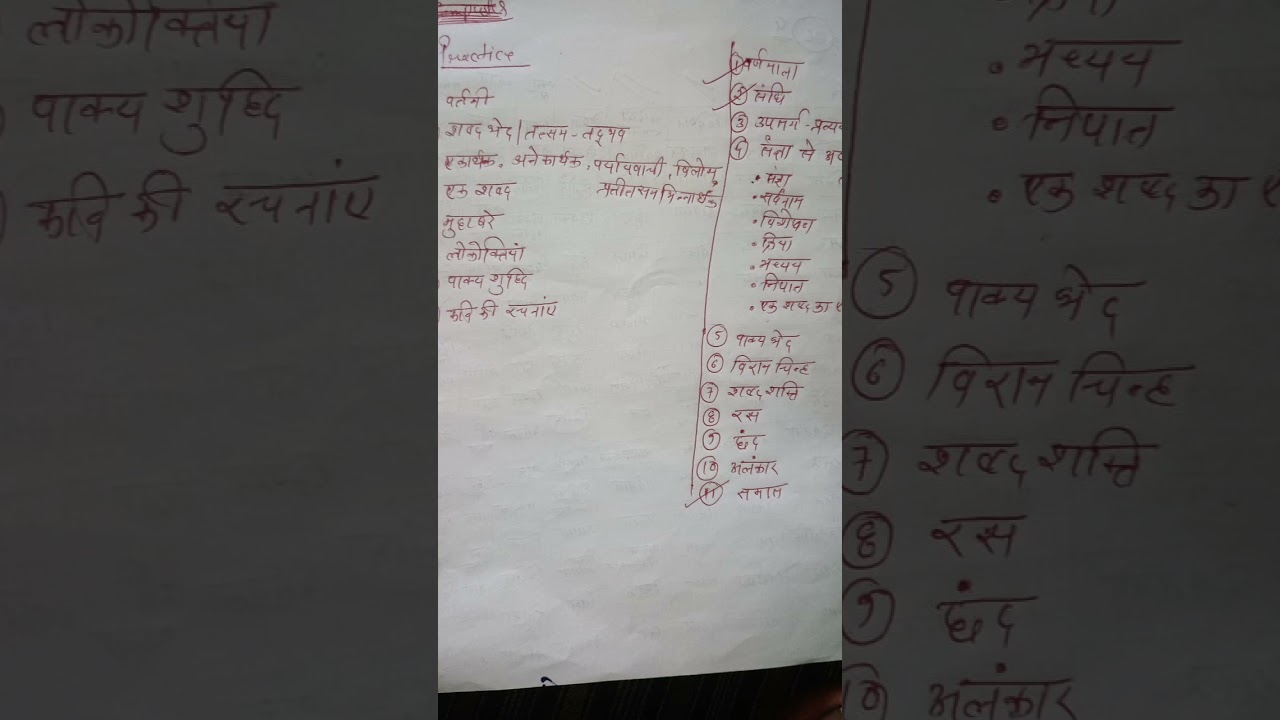 Practice
वर्तनी
शब्द भेद / तत्सम - तद्भव
एकार्थक, अनेकार्थक, पर्यायवाची, विलोम,
एक शब्द
मुहावरे
लोकोक्तियां
वाक्य शुद्धि
कवि की रचनाएं
① वर्णमाला
② संधि
③ उपसर्ग - प्रत्यय
④ संज्ञा से
• संज्ञा
• सर्वनाम
• विशेषण
• क्रिया
• अव्यय
• निपात
• एक शब्द का
⑤ वाक्य भेद
⑥ विराम चिन्ह
⑦ शब्द शक्ति
⑧ रस
⑨ छंद
⑩ अलंकार
⑪ समास